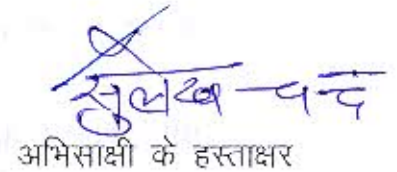 सुलेख चन्द
अभिसाक्षी के हस्ताक्षर